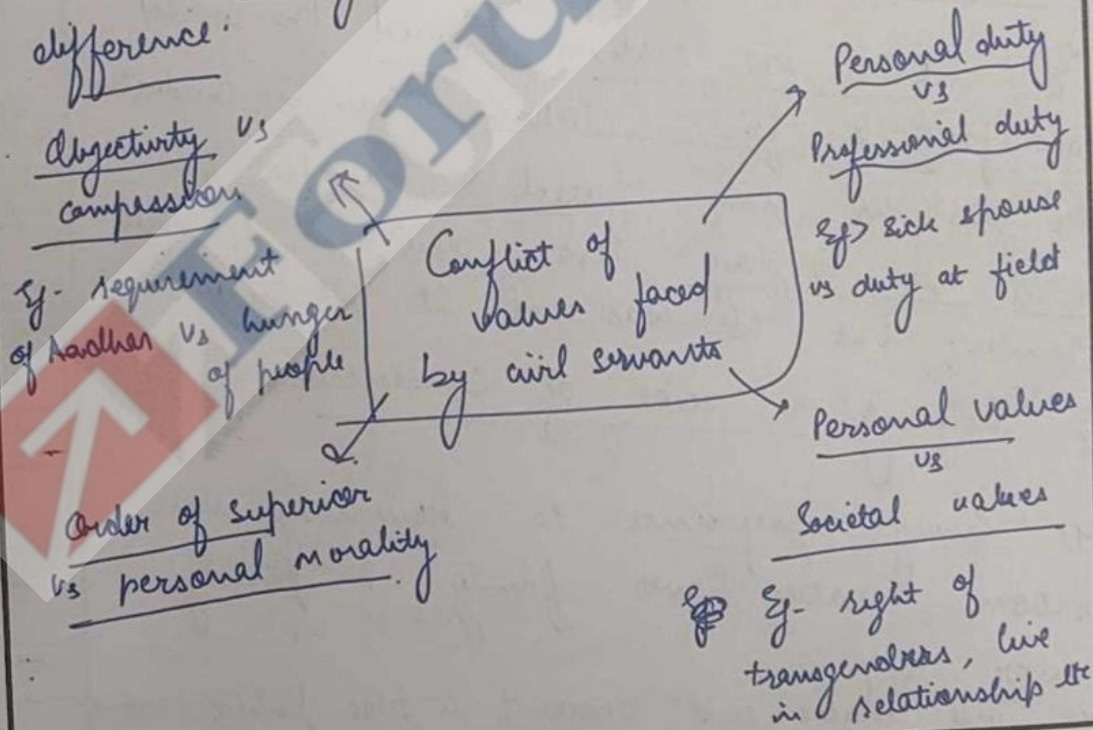 difference.
Objectivity vs
compassion
Eg- requirement
of Aadhar vs hunger
of people
Order of superior
vs personal morality.
Conflict of
values faced
by civil servants
Personal duty
vs
Professional duty
Eg> sick spouse
vs duty at field
Personal values
vs
Societal values
Eg- right of
transgenders, live
in relationship etc
Foru